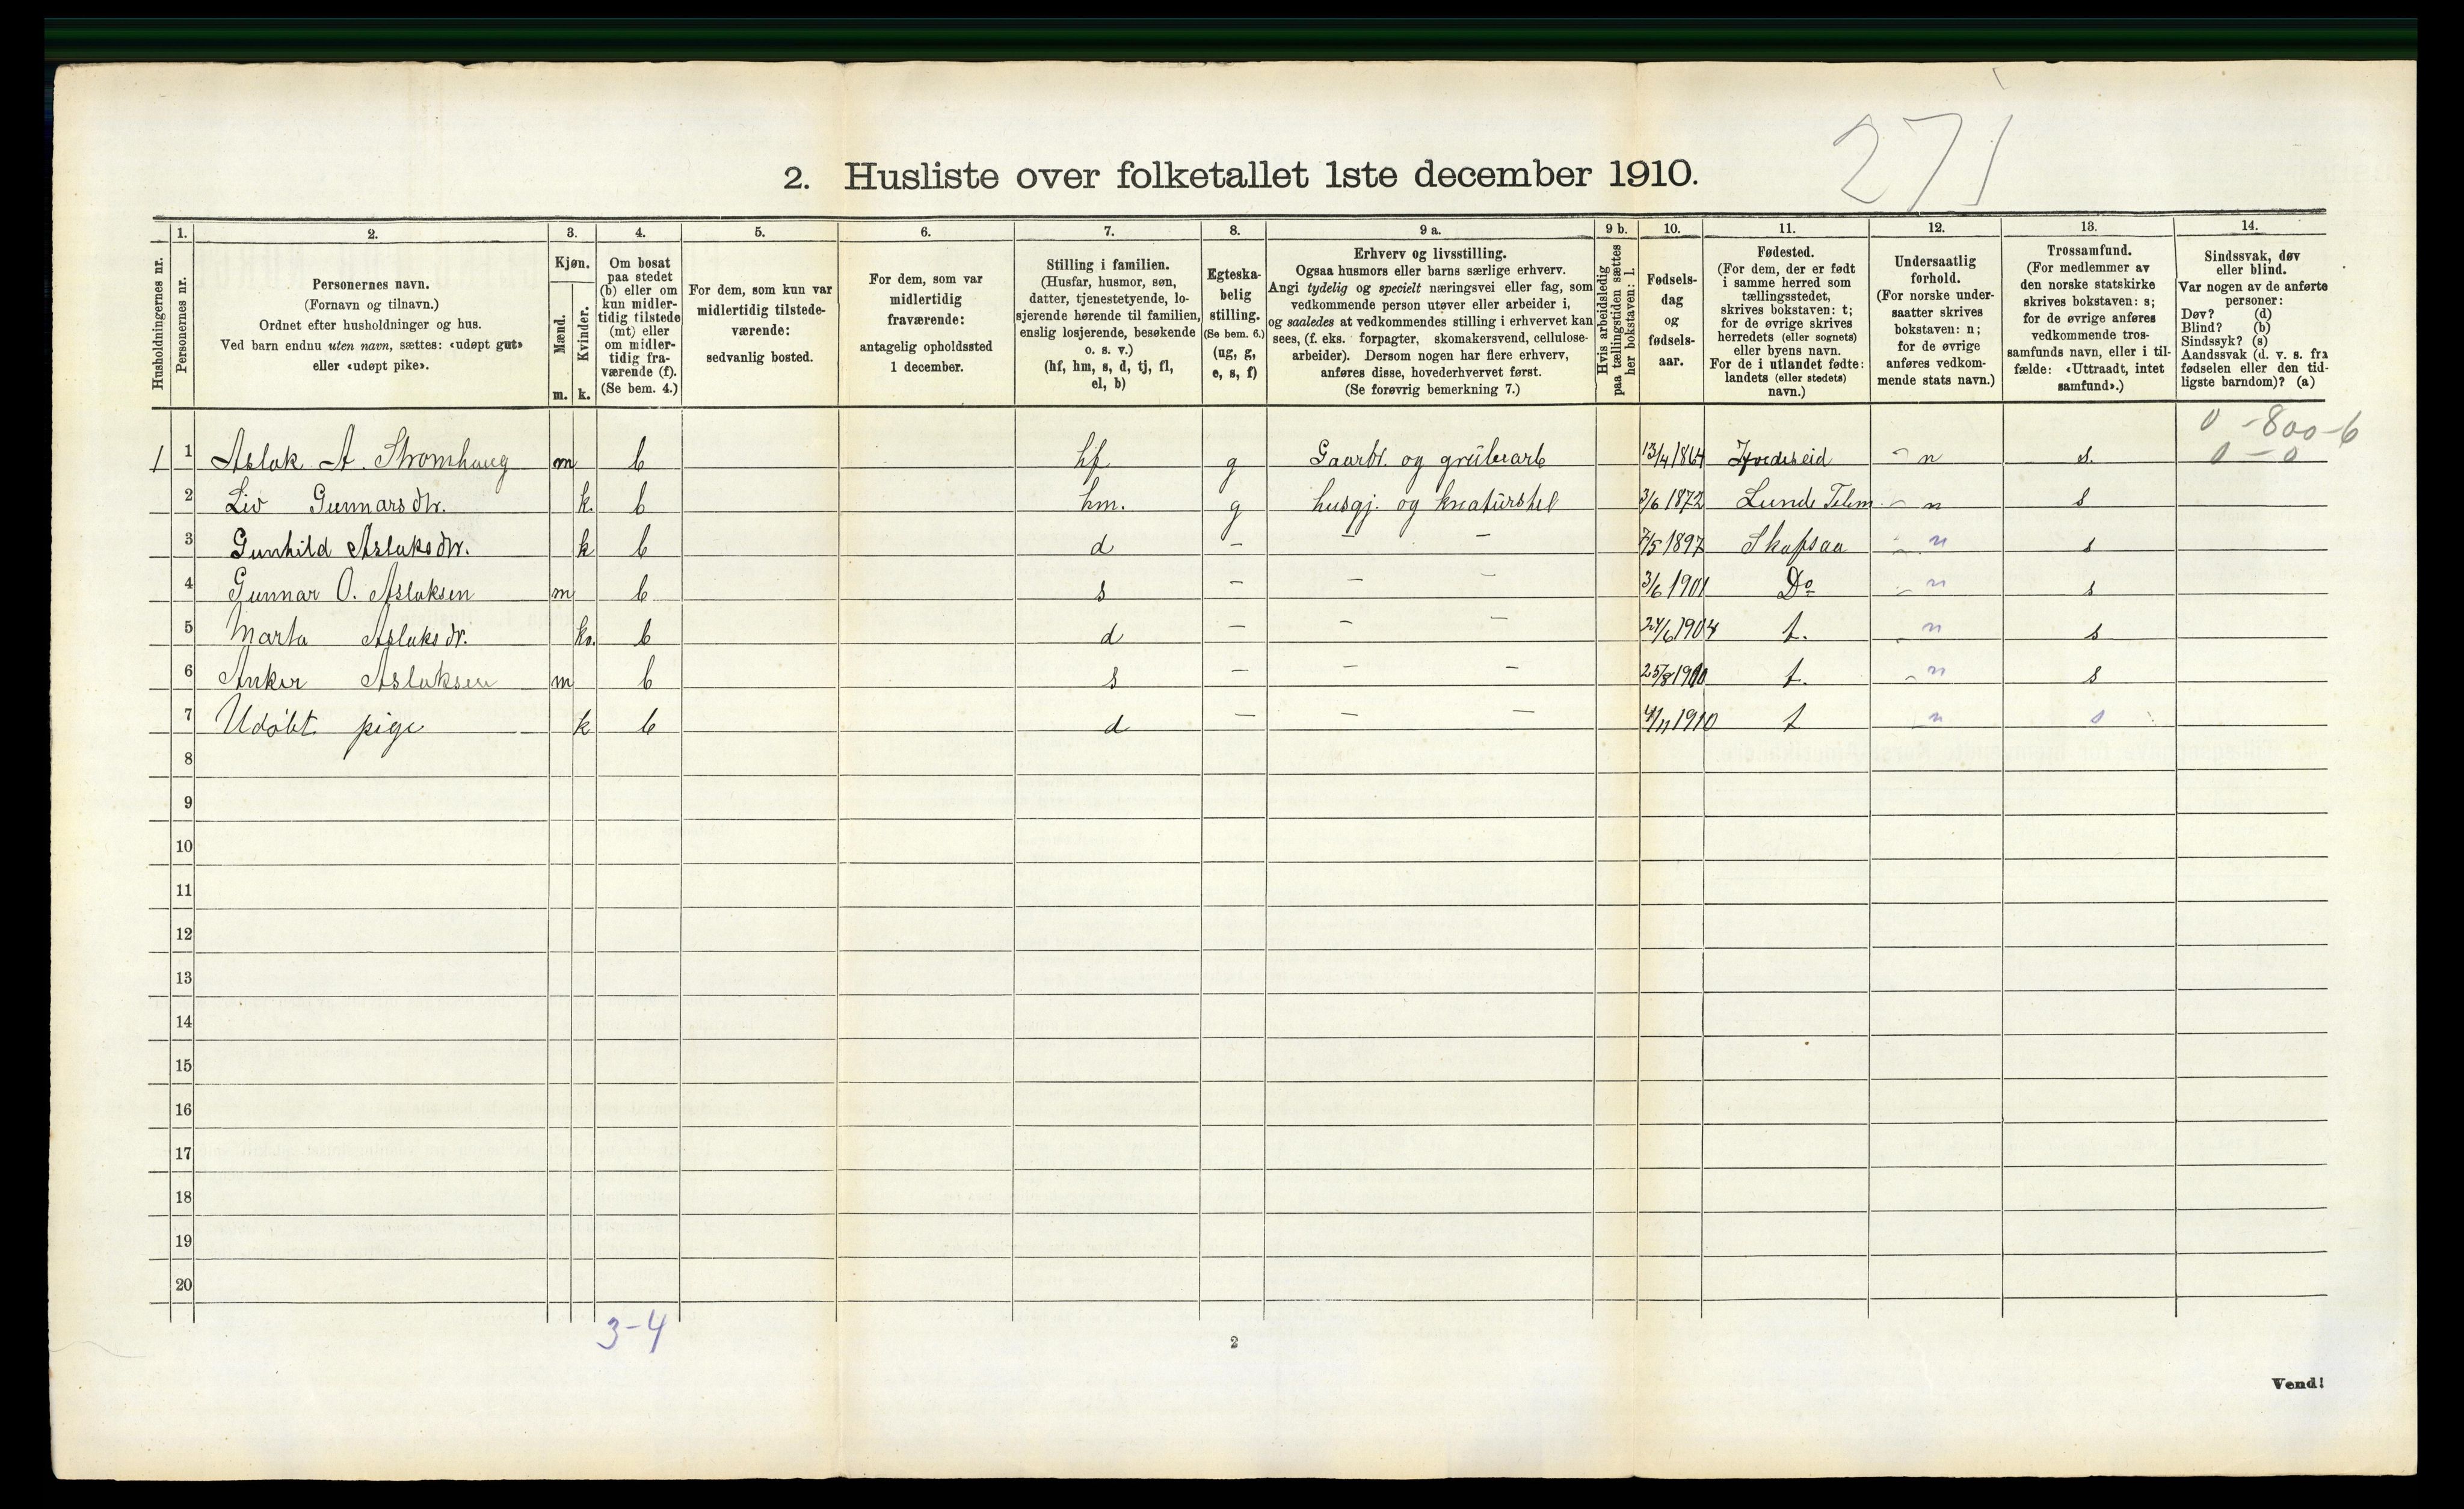 271
2. Husliste over folketallet 1ste december 1910.
Husholdningernes nr.
1.
Personernes nr.
2.
Personernes navn.
(Fornavn og tilnavn.)
Ordnet efter husholdninger og hus.
Ved barn endnu uten navn, sættes: «udøpt gut»
eller «udøpt pike».
3.
Kjøn.
Mænd.
Kvinder.
m. k.
4.
Om bosat
paa stedet
(b) eller om
kun midler-
tidig tilstede
(mt) eller
om midler-
tidig fra-
værende (f).
(Se bem. 4.)
5.
For dem, som kun var
midlertidig tilstede-
værende:
sedvanlig bosted.
6.
For dem, som var
midlertidig
fraværende:
antagelig opholdssted
1 december.
7.
Stilling i familien.
(Husfar, husmor, søn,
datter, tjenestetyende, lo-
sjerende hørende til familien,
enslig losjerende, besøkende
o. s. v.)
(hf, hm, s, d, tj, fl,
el, b)
8.
Egteska-
belig
stilling.
(Se bem. 6.)
(ug, g,
e, s, f)
9 a.
Erhverv og livsstilling.
Ogsaa husmors eller barns særlige erhverv.
Angi tydelig og specielt næringsvei eller fag, som
vedkommende person utøver eller arbeider i,
og saaledes at vedkommendes stilling i erhvervet kan
sees, (f. eks. forpagter, skomakersvend, cellulose-
arbeider). Dersom nogen har flere erhverv,
anføres disse, hovederhvervet først.
(Se forøvrig bemerkning 7.)
9 b.
Hvis arbeidsledig
paa tællingstiden sættes
her bokstaven: l.
10.
Fødsels-
dag
og
fødsels-
aar.
11.
Fødested.
(For dem, der er født
i samme herred som
tællingsstedet,
skrives bokstaven: t;
for de øvrige skrives
herredets (eller sognets)
eller byens navn.
For de i utlandet fødte:
landets (eller stedets)
navn.)
12.
Undersaatlig
forhold.
(For norske under-
saatter skrives
bokstaven: n;
for de øvrige
anføres vedkom-
mende stats navn.)
13.
Trossamfund.
(For medlemmer av
den norske statskirke
skrives bokstaven: s;
for de øvrige anføres
vedkommende tros-
samfunds navn, eller i til-
fælde: «Uttraadt, intet
samfund».)
14.
Sindssvak, døv
eller blind.
Var nogen av de anførte
personer:
Døv? (d)
Blind? (b)
Sindssyk? (s)
Aandssvak (d. v. s. fra
fødselen eller den tid-
ligste barndom)? (a)
0 - 800 - 6
0 - 0
1 1 Aslak A. Stromhaug m b hf g Gaardbr. og grübearb 13/4 1864 Hvideseid n s.
2 Liv Gunnarsdtr. k. b hm. g husgj. og kreatürstel 3/6 1872 Lunde Telem. n s
3 Gunhild Aslaksdtr. k b d - - - 7/5 1897 Skafsaa n s
4 Gunnar O. Aslaksen m b s - - - 3/6 1901 Do n s
5 Marta Aslaksdr. k. b d - - - 24/6 1904 t. n s
6 Anker Aslaksen m b s - - - 25/8 1900 t. n s
7 Udöbt pige k b d - - - 4/11 1910 t n s
8
9
10
11
12
13
14
15
16
17
18
19
20
3-4
2
Vend!